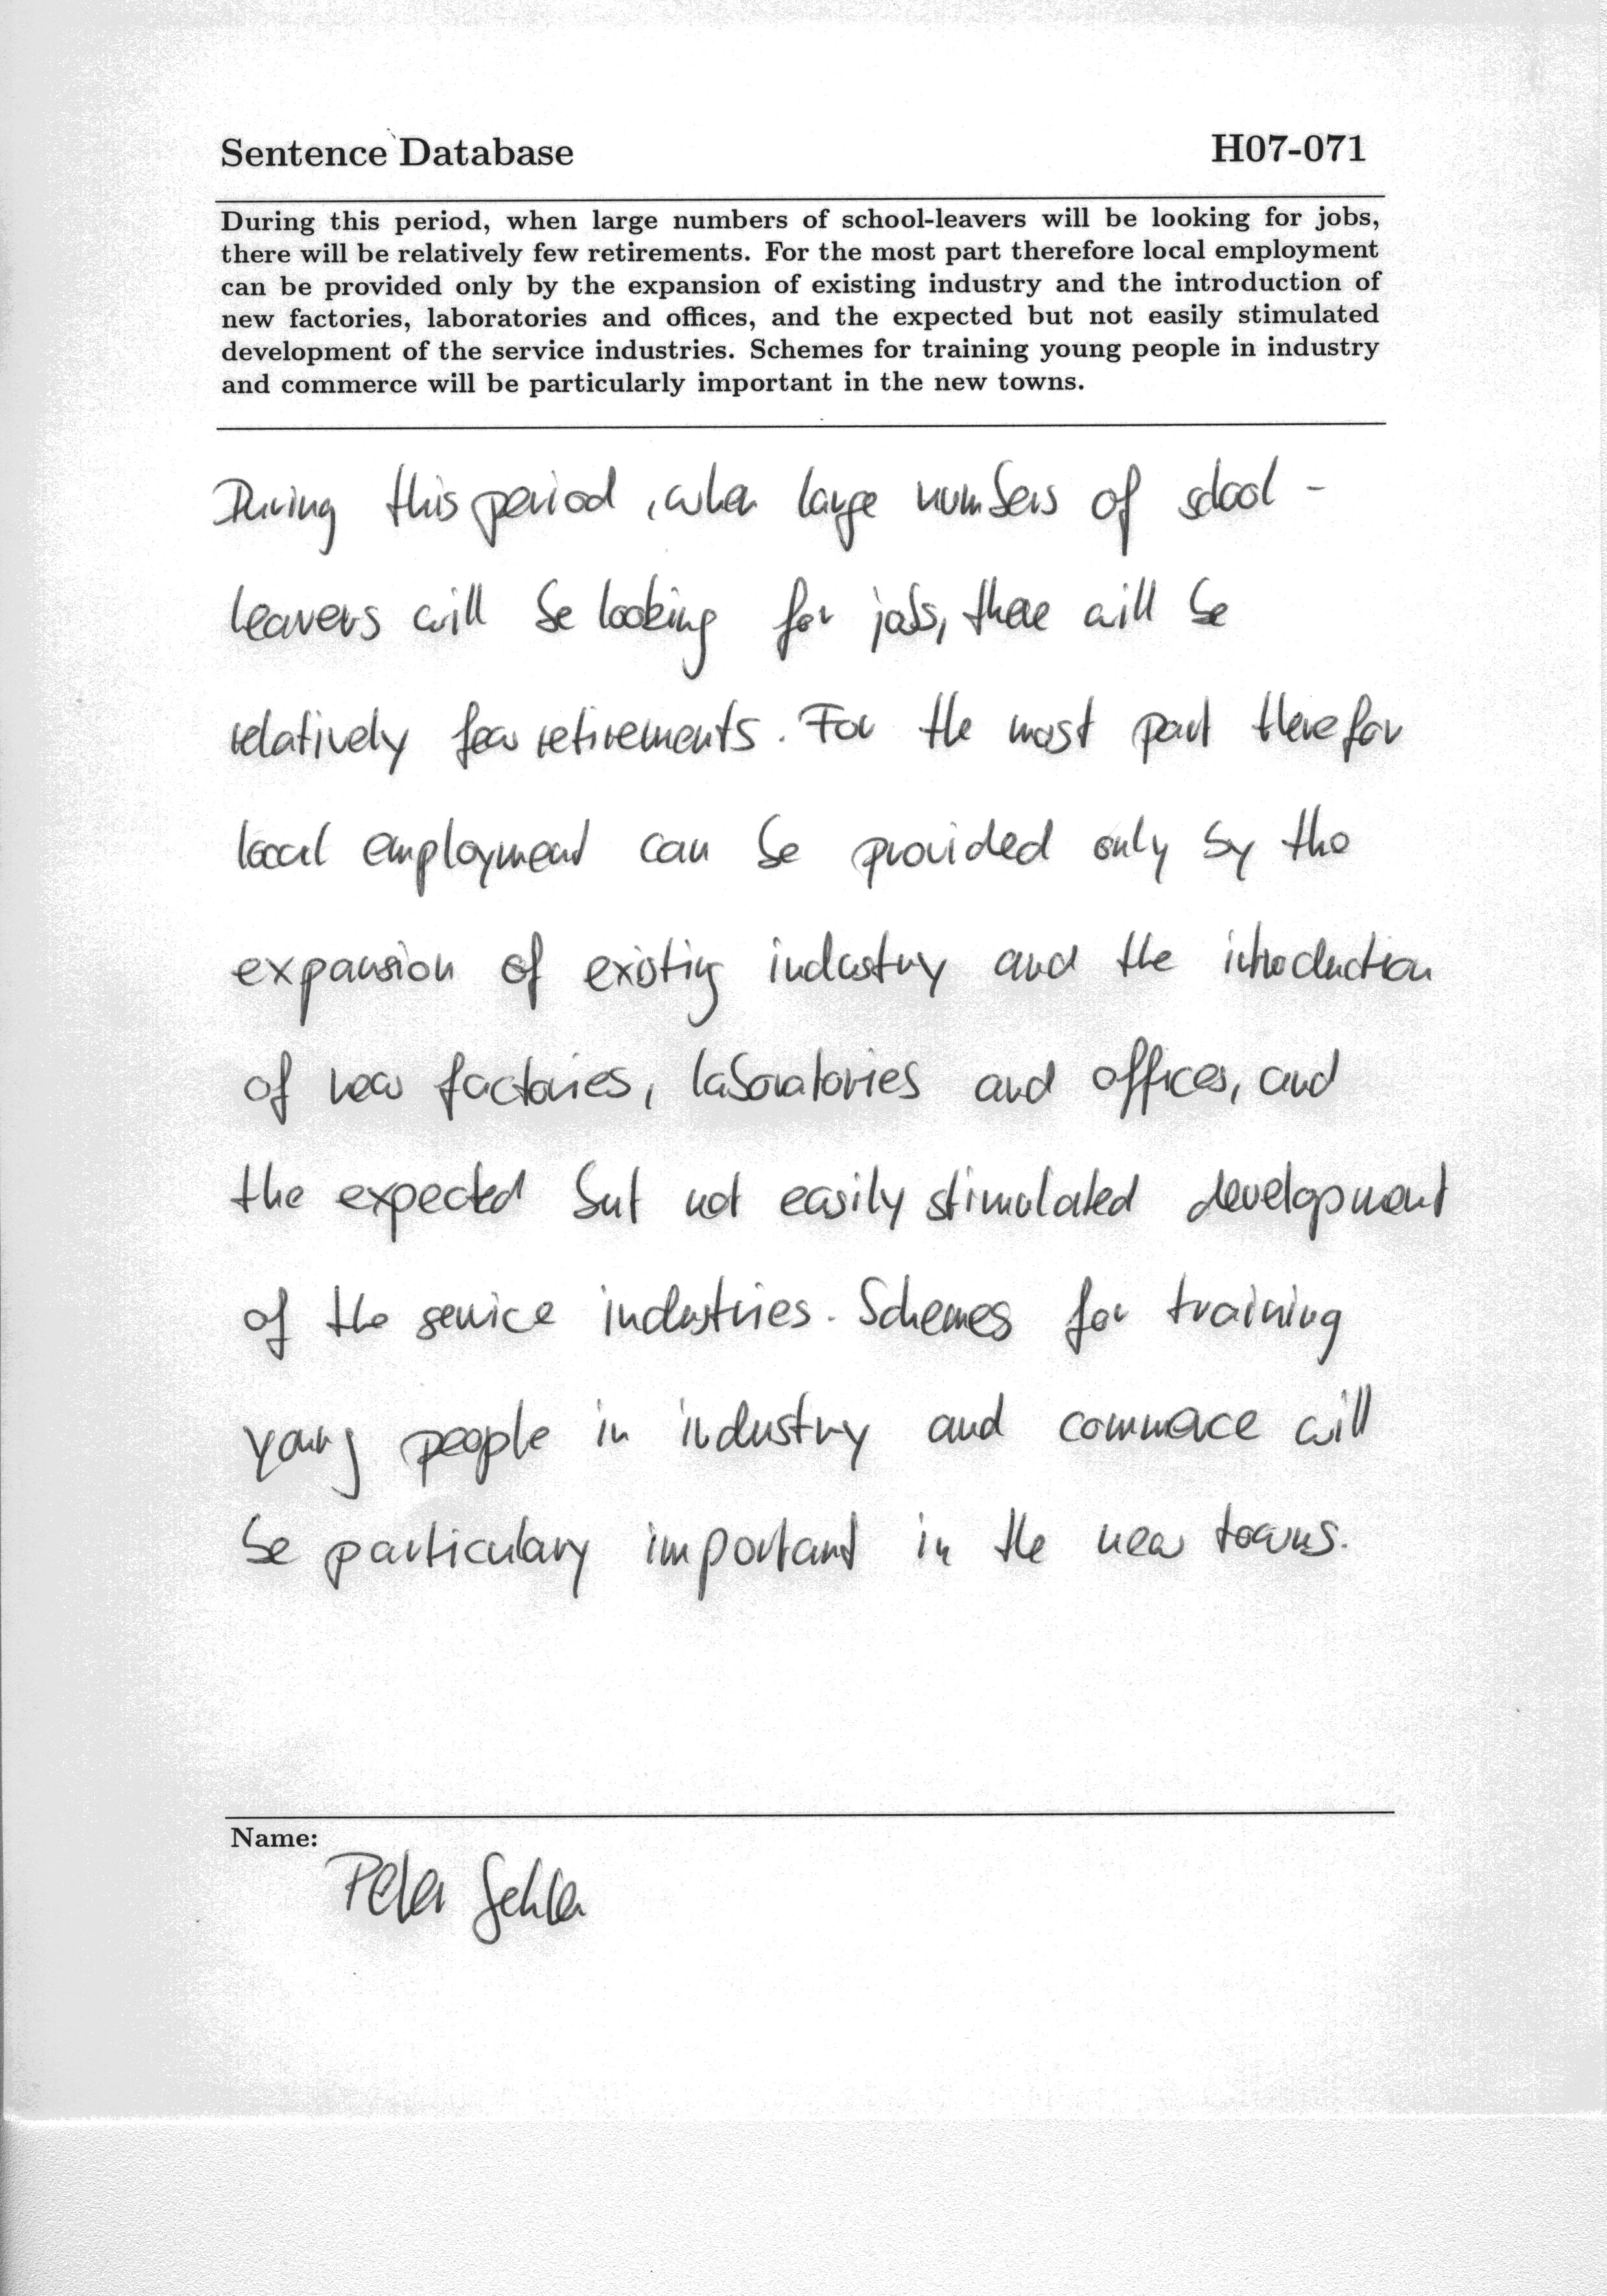 Sentence Database H07-071
During this period, when large numbers of school-leavers will be looking for jobs,
there will be relatively few retirements. For the most part therefore local employment
can be provided only by the expansion of existing industry and the introduction of
new factories, laboratories and offices, and the expected but not easily stimulated
development of the service industries. Schemes for training young people in industry
and commerce will be particularly important in the new towns.
During this period , when large numbers of school -
leavers will be looking for jobs, there will be
relatively few retirements. For the most part therefor
local employment can be provided only by the
expansion of existig industry and the introduction
of new factories, laboratories and offices, and
the expected but not easily stimulated development
of the service industries. Schemes for training
young people in industry and commerce will
be particulary important in the new towns.
Name:
Peter